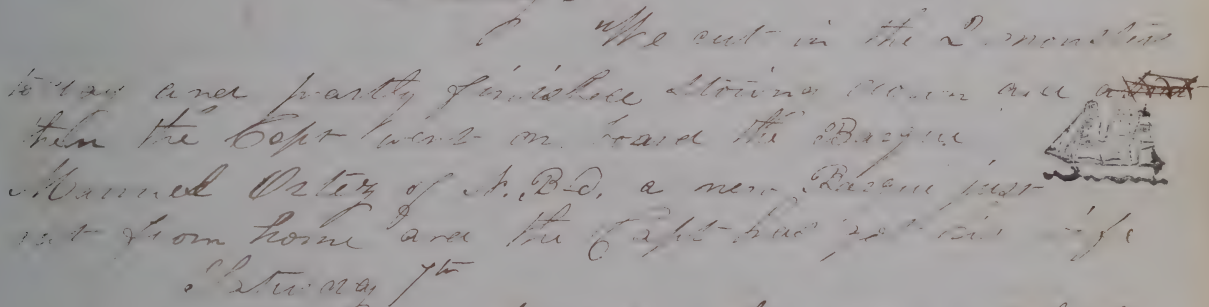 6 "We cut in the 2 monsters
to day and partly finished stowing down and
then the Capt went on board the Barque
Manuel Ortez of N.B-d. a new Barque just
out from home and the Capt had got his wife
Saturday 7th